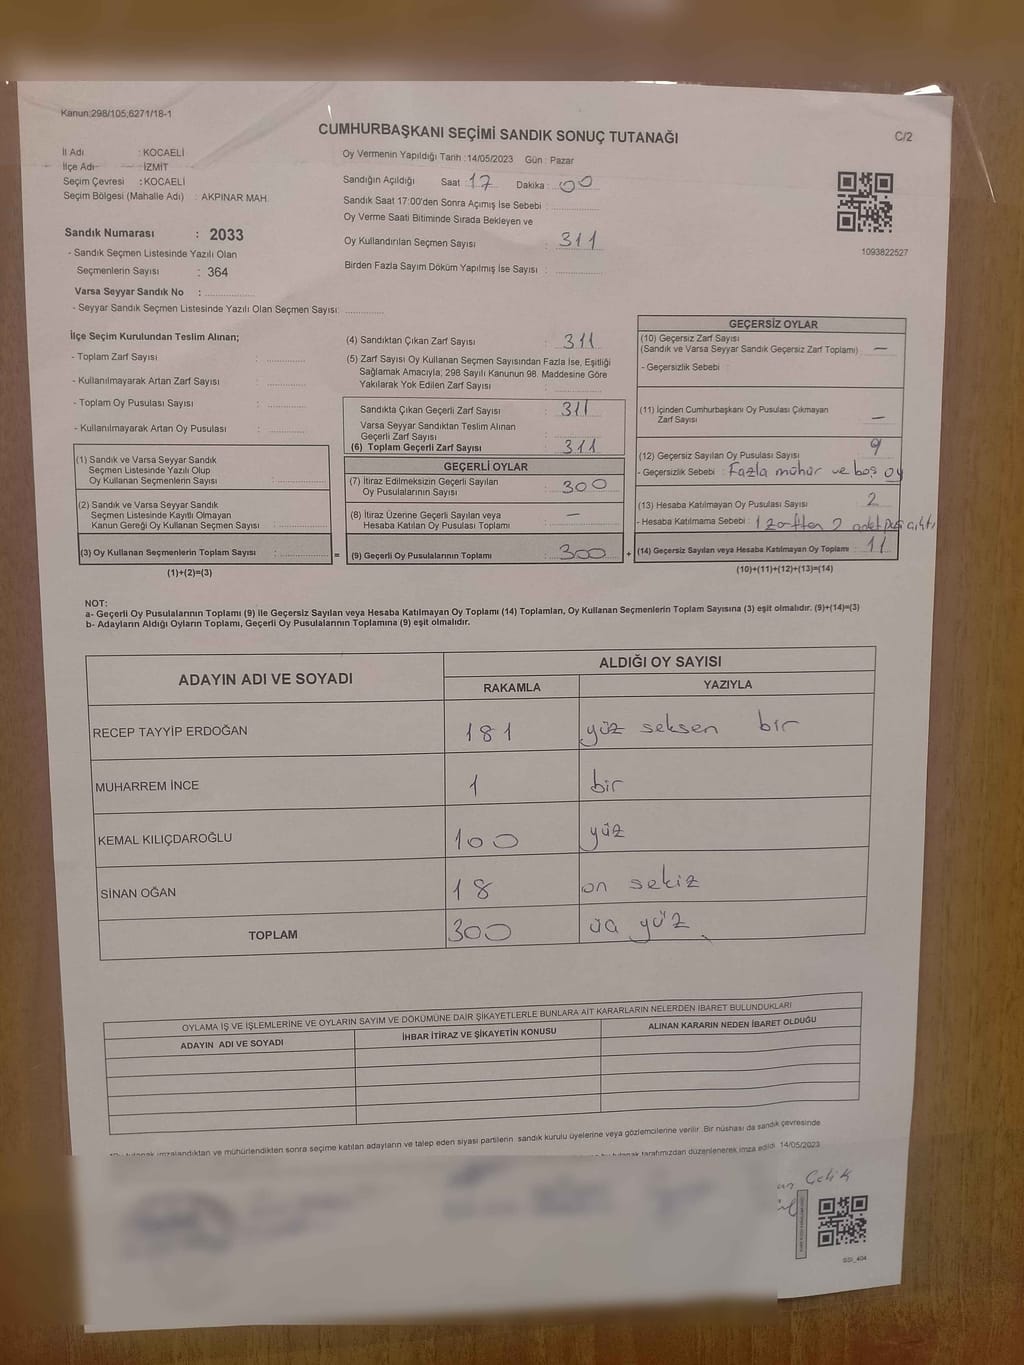 Kanun:298/105;6271/18-1
CUMHURBAŞKANI SEÇİMİ SANDIK SONUÇ TUTANAĞI
C/2
İl Adı : KOCAELİ
İlçe Adı : İZMİT
Seçim Çevresi : KOCAELİ
Seçim Bölgesi (Mahalle Adı) : AKPINAR MAH.
Sandık Numarası : 2033
- Sandık Seçmen Listesinde Yazılı Olan
Seçmenlerin Sayısı : 364
Varsa Seyyar Sandık No :
- Seyyar Sandık Seçmen Listesinde Yazılı Olan Seçmen Sayısı:
Oy Vermenin Yapıldığı Tarih :14/05/2023 Gün : Pazar
Sandığın Açıldığı Saat : 17 Dakika : 00
Sandık Saat 17:00'den Sonra Açımış İse Sebebi :
Oy Verme Saati Bitiminde Sırada Bekleyen ve
Oy Kullandırılan Seçmen Sayısı : 311
Birden Fazla Sayım Döküm Yapılmış İse Sayısı :
1093822527
İlçe Seçim Kurulundan Teslim Alınan;
- Toplam Zarf Sayısı :
- Kullanılmayarak Artan Zarf Sayısı :
- Toplam Oy Pusulası Sayısı :
- Kullanılmayarak Artan Oy Pusulası :
(1) Sandık ve Varsa Seyyar Sandık
Seçmen Listesinde Yazılı Olup
Oy Kullanan Seçmenlerin Sayısı :
(2) Sandık ve Varsa Seyyar Sandık
Seçmen Listesinde Kayıtlı Olmayan
Kanun Gereği Oy Kullanan Seçmen Sayısı :
(3) Oy Kullanan Seçmenlerin Toplam Sayısı : =
(1)+(2)=(3)
(4) Sandıktan Çıkan Zarf Sayısı : 311
(5) Zarf Sayısı Oy Kullanan Seçmen Sayısından Fazla İse, Eşitliği
Sağlamak Amacıyla; 298 Sayılı Kanunun 98. Maddesine Göre
Yakılarak Yok Edilen Zarf Sayısı :
Sandıkta Çıkan Geçerli Zarf Sayısı : 311
Varsa Seyyar Sandıktan Teslim Alınan
Geçerli Zarf Sayısı :
(6) Toplam Geçerli Zarf Sayısı : 311
GEÇERLİ OYLAR
(7) İtiraz Edilmeksizin Geçerli Sayılan
Oy Pusulalarının Sayısı : 300
(8) İtiraz Üzerine Geçerli Sayılan veya
Hesaba Katılan Oy Pusulası Toplamı : —
(9) Geçerli Oy Pusulalarının Toplamı : 300 +
GEÇERSİZ OYLAR
(10) Geçersiz Zarf Sayısı
(Sandık ve Varsa Seyyar Sandık Geçersiz Zarf Toplamı) : —
- Geçersizlik Sebebi :
(11) İçinden Cumhurbaşkanı Oy Pusulası Çıkmayan
Zarf Sayısı : —
(12) Geçersiz Sayılan Oy Pusulası Sayısı : 9
- Geçersizlik Sebebi : Fazla mühür ve boş oy
(13) Hesaba Katılmayan Oy Pusulası Sayısı : 2
- Hesaba Katılmama Sebebi : 1 zarftan 2 adet
(14) Geçersiz Sayılan veya Hesaba Katılmayan Oy Toplamı : 11
(10)+(11)+(12)+(13)=(14)
NOT:
a- Geçerli Oy Pusulalarının Toplamı (9) ile Geçersiz Sayılan veya Hesaba Katılmayan Oy Toplamı (14) Toplamları, Oy Kullanan Seçmenlerin Toplam Sayısına (3) eşit olmalıdır. (9)+(14)=(3)
b- Adayların Aldığı Oyların Toplamı, Geçerli Oy Pusulalarının Toplamına (9) eşit olmalıdır.
ADAYIN ADI VE SOYADI
ALDIĞI OY SAYISI
RAKAMLA YAZIYLA
RECEP TAYYİP ERDOĞAN 181 yüz seksen bir
MUHARREM İNCE 1 bir
KEMAL KILIÇDAROĞLU 100 yüz
SİNAN OĞAN 18 on sekiz
TOPLAM 300 üç yüz
OYLAMA İŞ VE İŞLEMLERİNE VE OYLARIN SAYIM VE DÖKÜMÜNE DAİR ŞİKAYETLERLE BUNLARA AİT KARARLARIN NELERDEN İBARET BULUNDUKLARI
ADAYIN ADI VE SOYADI İHBAR İTİRAZ VE ŞİKAYETİN KONUSU ALINAN KARARIN NEDEN İBARET OLDUĞU
tutanak imzalandıktan ve mühürlendikten sonra seçime katılan adayların ve talep eden siyasi partilerin sandık kurulu üyelerine veya gözlemcilerine verilir. Bir nüshası da sandık çevresinde
tutanak tarafımızdan düzenlenerek imza edildi. 14/05/2023
Çelik
SSI_404